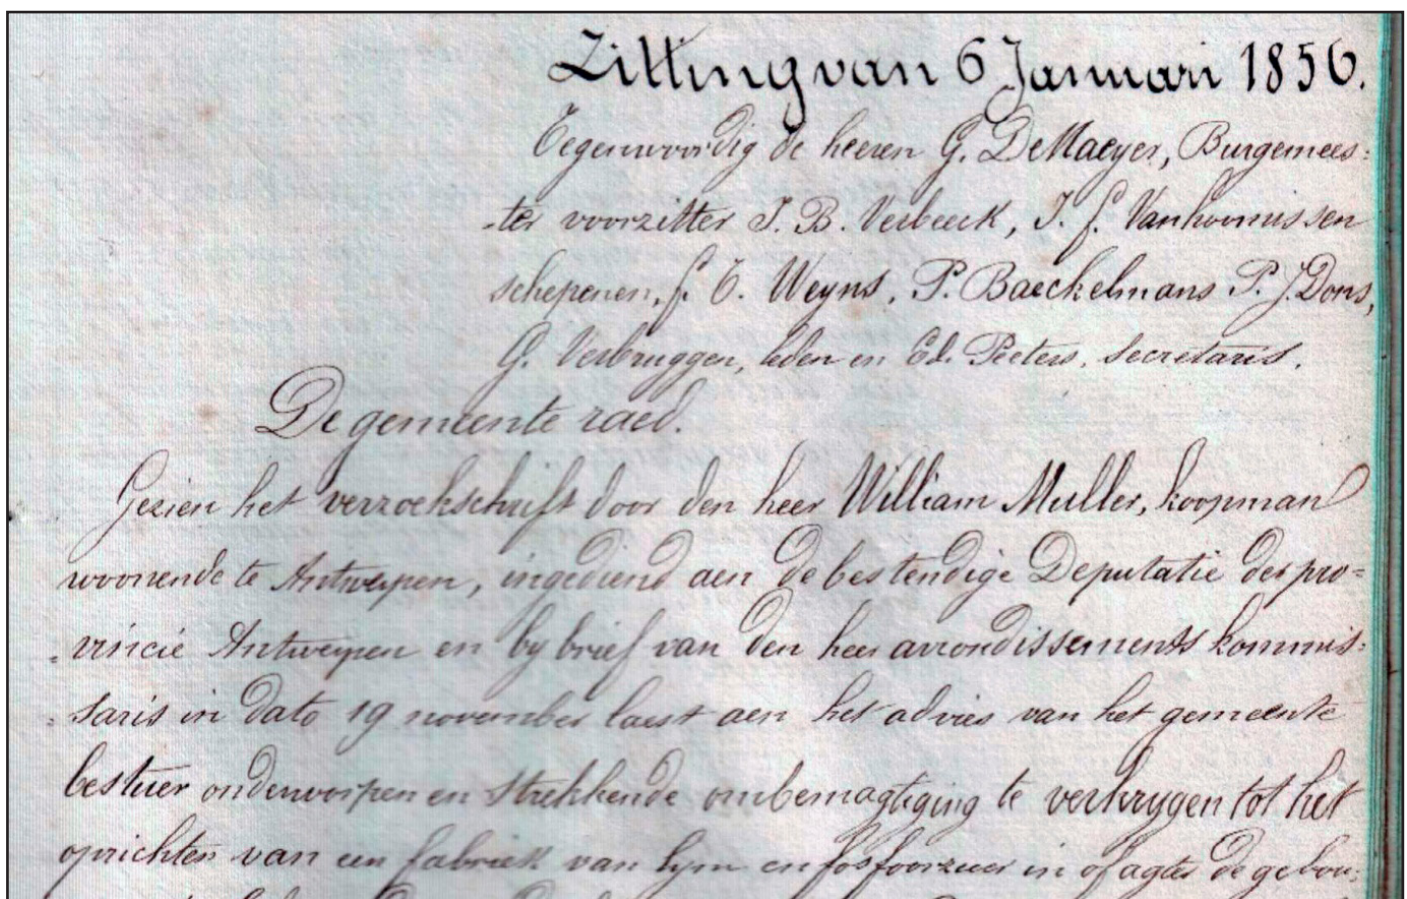 Zitting van 6 Januari 1856.
Tegenwoordig de heeren G. DeMaeyer, Burgemees:
-ter voorzitter J. B. Verbeeck, J. f. Vanhoomissen
schepenen, f. C. Weyns, P. Baeckelmans P. J. Dons,
G. Verbruggen, leden en Ed. Peeters, secretaris.
De gemeente raed.
Gezien het verzoekschrift door den heer William Muller, koopman
woonende te Antwerpen, ingediend aen de bestendige Deputatie der pro=
=vincie Antwerpen en by brief van den heer arrondissements kommis:
=saris in dato 19 november laest aen het advies van het gemeente
bestuer onderworpen en strekkende om bemagtiging te verkrygen tot het
oprichten van een fabriek van lym en fosfoorzuer in of agter de gebou: